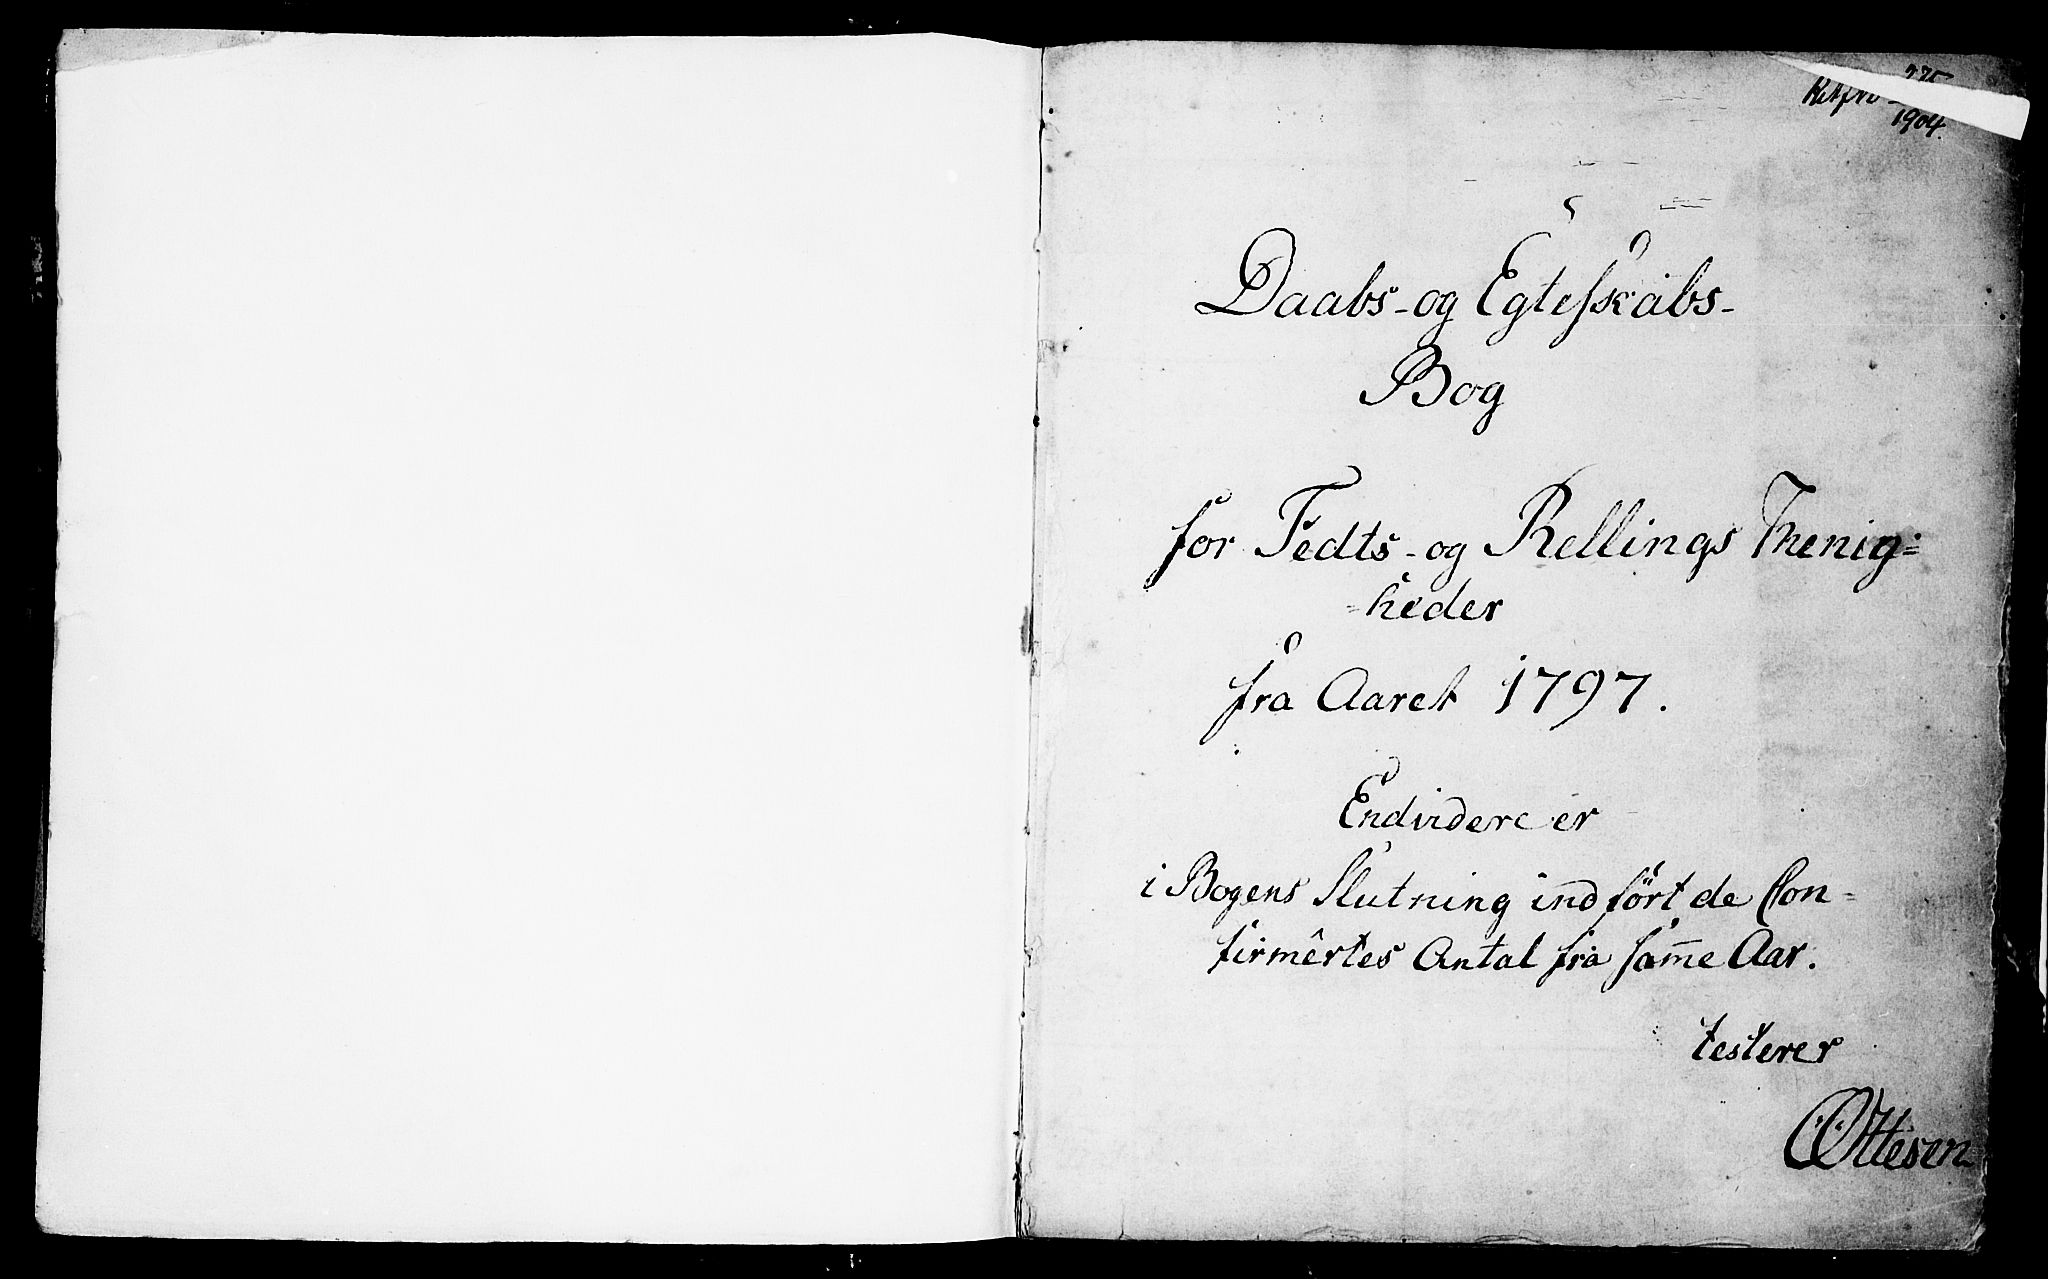 1904.
Daabs-og Egteskabs-
Bog
for Tedts-og Rellings Menig=
=heder
fra Aaret 1797.
Endvidere er
i Bogens Slutning indført de Con=
firmêrtes Antal fra sam̅e Aar.
testerer
Ottesen